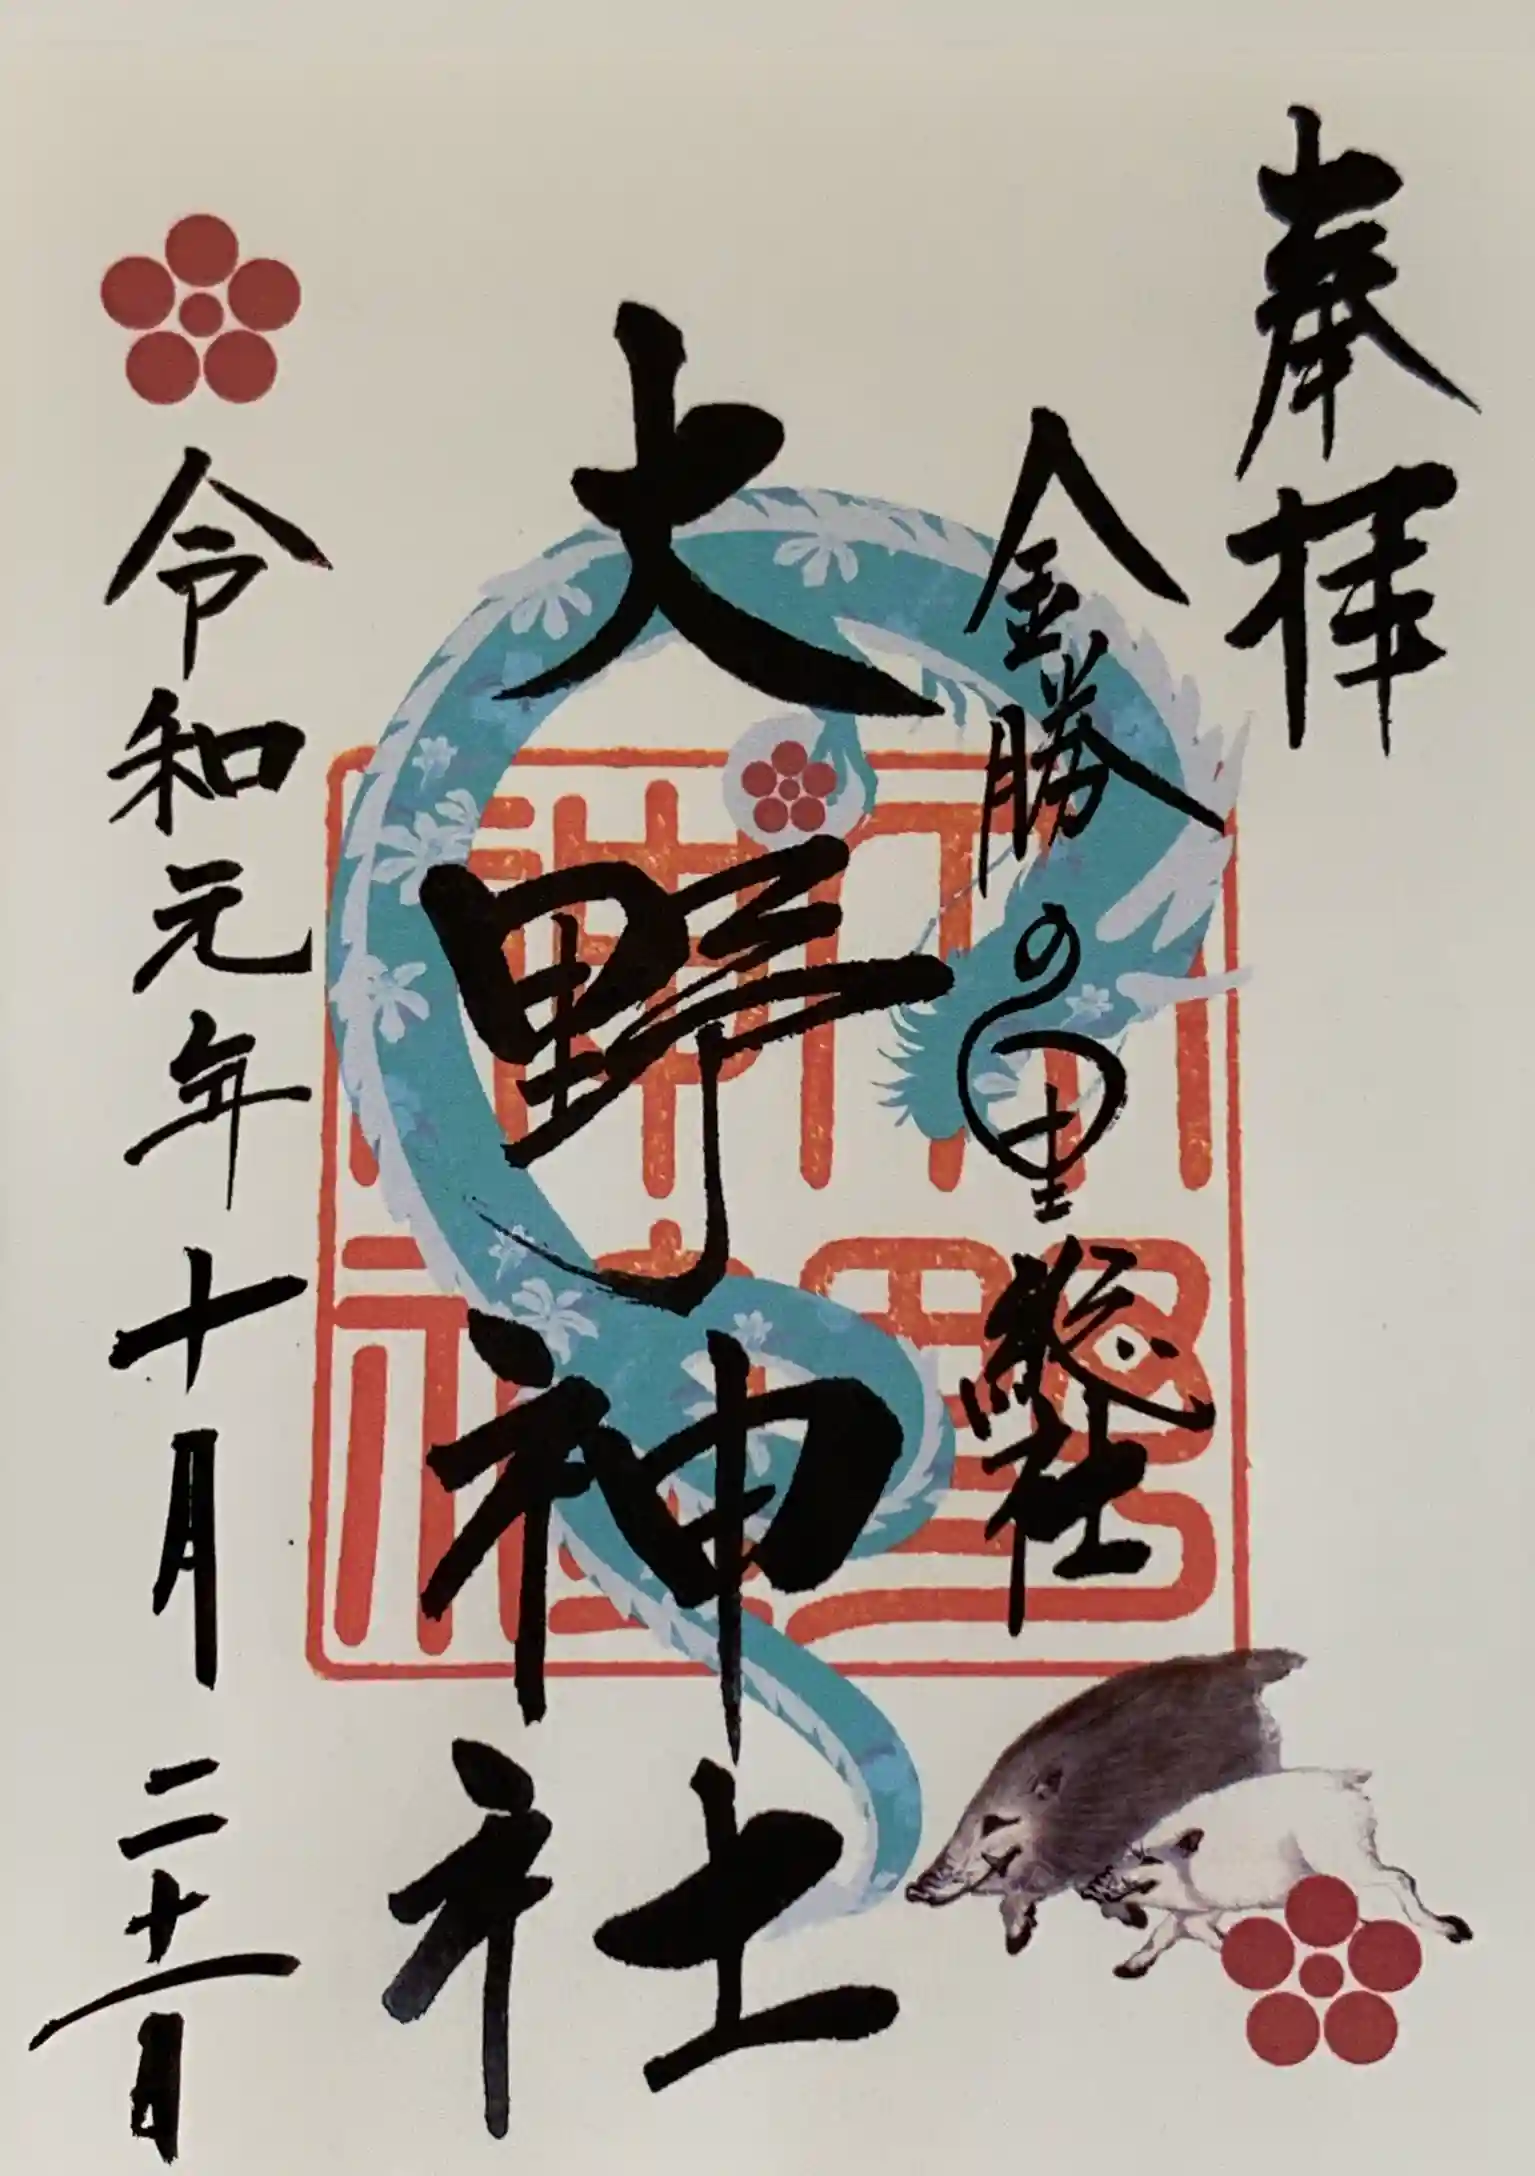 奉拝
金勝の里 総社
大野神社
令和元年十月二十一日